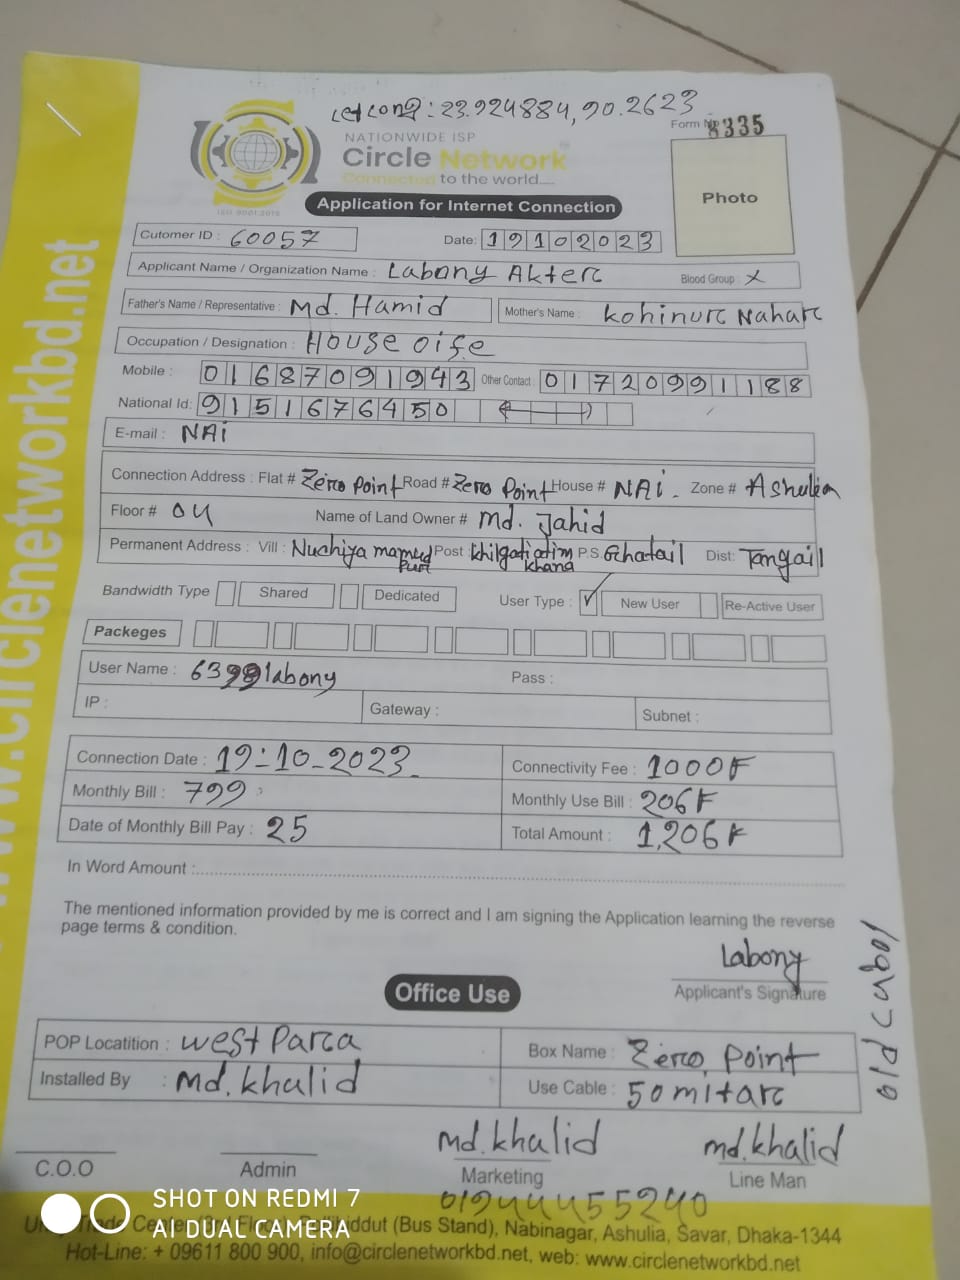 Let Long: 23.924884, 90.2623
Form No 8335
NATIONWIDE ISP
Circle Network
Connected to the world.....
ISO 9001:2015
Photo
Application for Internet Connection
Cutomer ID : 60057 Date: 19102023
Applicant Name / Organization Name : Labony Akter Blood Group : X
Father's Name / Representative : Md. Hamid Mother's Name : Kohinur Nahar
Occupation / Designation : House oife
Mobile : 01687091943 Other Contact : 01720991188
National Id: 9151676450
E-mail : NAi
Connection Address : Flat # Zero Point Road # Zero Point House # NAi. Zone # Ashulia
Floor # 04 Name of Land Owner # Md. Jahid
Permanent Address : Vill : Nuchiya mamud Pur Post : Khilgati atim khana P.S. Ghatail Dist: Tangail
Bandwidth Type Shared Dedicated User Type : ✓ New User Re-Active User
Packeges
User Name : labony Pass :
IP : Gateway : Subnet :
Connection Date : 19-10-2023 Connectivity Fee : 1000
Monthly Bill : 799 Monthly Use Bill : 206
Date of Monthly Bill Pay : 25 Total Amount : 1,206
In Word Amount :
The mentioned information provided by me is correct and I am signing the Application learning the reverse
page terms & condition.
Labony
Applicant's Signature
Office Use
POP Locatition : West Para Box Name : Zero Point
Installed By : Md. Khalid Use Cable : 50 mitar
old cabol
md. khalid md. khalid
C.O.O Admin Marketing Line Man
01944455240
Center, (Bus Stand), Nabinagar, Ashulia, Savar, Dhaka-1344
Hot-Line: + 09611 800 900, info@circlenetworkbd.net, web: www.circlenetworkbd.net
www.circlenetworkbd.net
SHOT ON REDMI 7
AI DUAL CAMERA